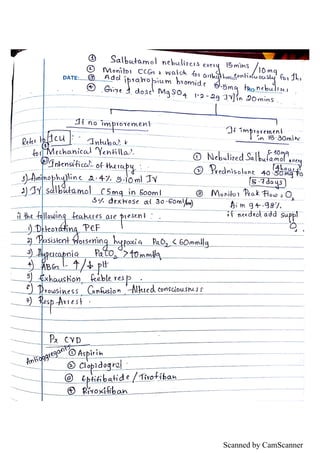 ① Salbutamol nebulizers every 15mins /10mg
② Monitor ECGs & watch for continuously for 1hr
DATE: ③ Add ipratropium bromide 0.5mg to nebulizers
④ Give 1 dose MgSO4 1.2-2g IV in 20mins.
If no improvement
If improvement in 15-30min
Refer to ICU
① Intubat?
for Mechanical Ventilla?
② Intensifica? of therapy:
1) Aminophylline 2.4% 5-10ml IV
2) IV salbutamol (5mg in 500ml
5% dextrose at 30-60ml/hr)
① Nebulized Salbutamol every 4hours
5-10mg
② Prednisolone 40-50mg PO
5-7days
③ Monitor Peak Flow & O2
Aim 94-98%
if needed add suppl O2
if the following features are present:
1) Deteorating PEF
2) Persistent Worsening hypoxia PaO2 < 60mmHg
3) Hypercapnia PaCO2 > 40mmHg
4) ABGs - ↑/↓ pH
5) Exhaustion, feeble resp.
6) Drowsiness, Confusion Altered consciousness
7) Resp Arrest.
Px CVD
Antiaggregants
① Aspirin
② Clopidogrel
③ Eptifibatide / Tirofiban
④ Riroxifiban
Scanned by CamScanner